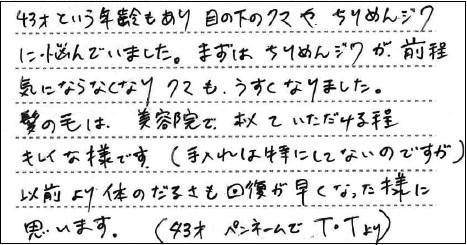 43才という年齢もあり 目の下のクマや ちりめんジワ
に悩んでいました。まずは ちりめんジワが 前程
気にならなくなり クマも、うすくなりました。
髪の毛は、美容院で、ホメていただける程
キレイな様です (手入れは特にしてないのですが)
以前より体のだるさも回復が早くなった様に
思います。 (43才 ペンネームで T・Tより)